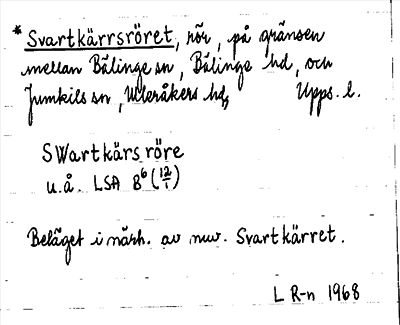 * Svartkärrsröret, rör, på gränsen
mellan Bälinge sn, Bälinge hd, och
Jumkils sn, Ulleråkers hd, Upps. l.
SWartkärs röre
u.å. LSA B⁶ (12/1)
Beläget i närh. av nuv. Svartkärret.
L R-n 1968